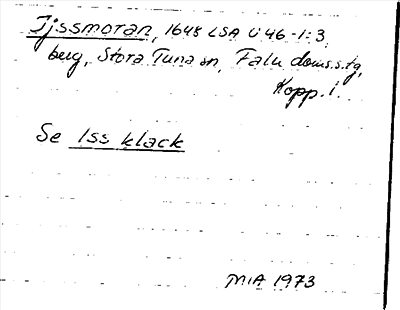 Ijssmoran, 1648 LSA U 46-1:3
berg, Stora Tuna sn, Falu doms.s.tg,
Kopp. l.
Se Iss klack
MIA 1973